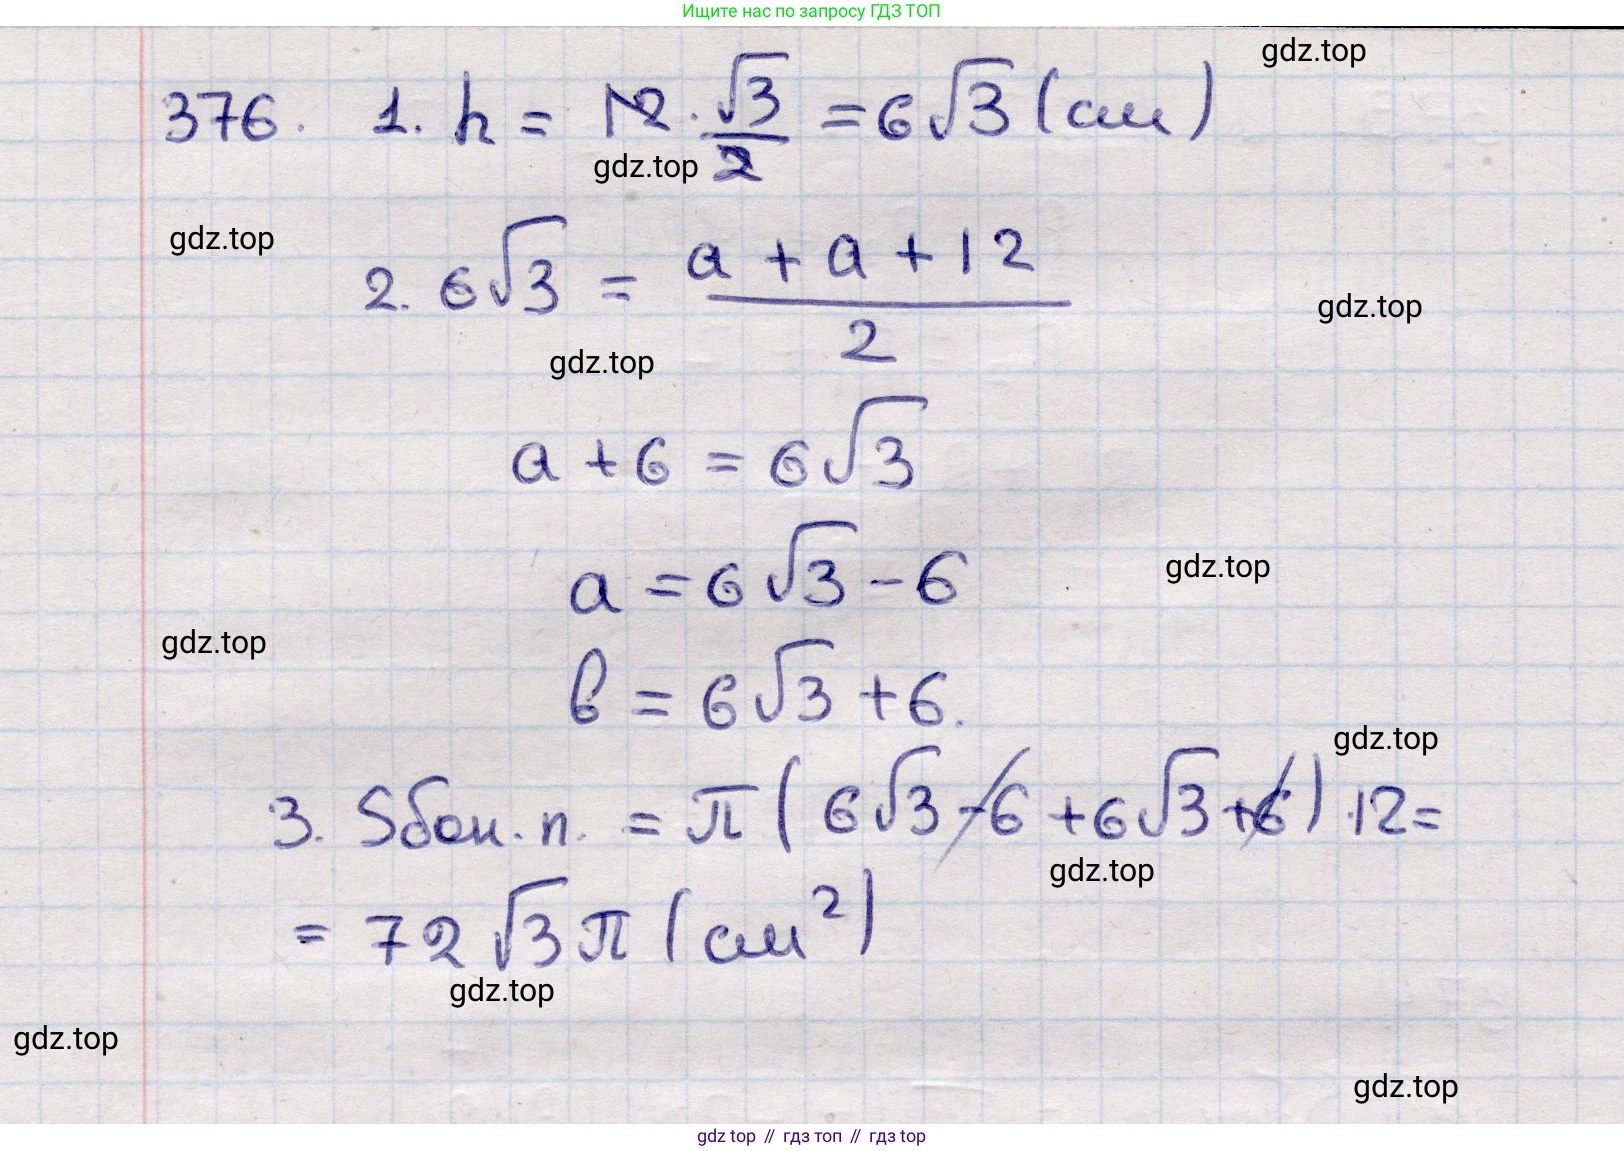 Ищите нас по запросу ГДЗ ТОП
gdz.top
376. 1. h = 12 · √3/2 = 6√3 (см)
gdz.top
gdz.top
2. 6√3 = (a + a + 12)/2
gdz.top
gdz.top
a + 6 = 6√3
a = 6√3 - 6
gdz.top
gdz.top
b = 6√3 + 6.
gdz.top
3. Sбок. п. = π(6√3 - 6 + 6√3 + 6) · 12 =
gdz.top
= 72√3π (см²)
gdz.top
gdz.top
gdz.top
gdz top // гдз топ // гдз top